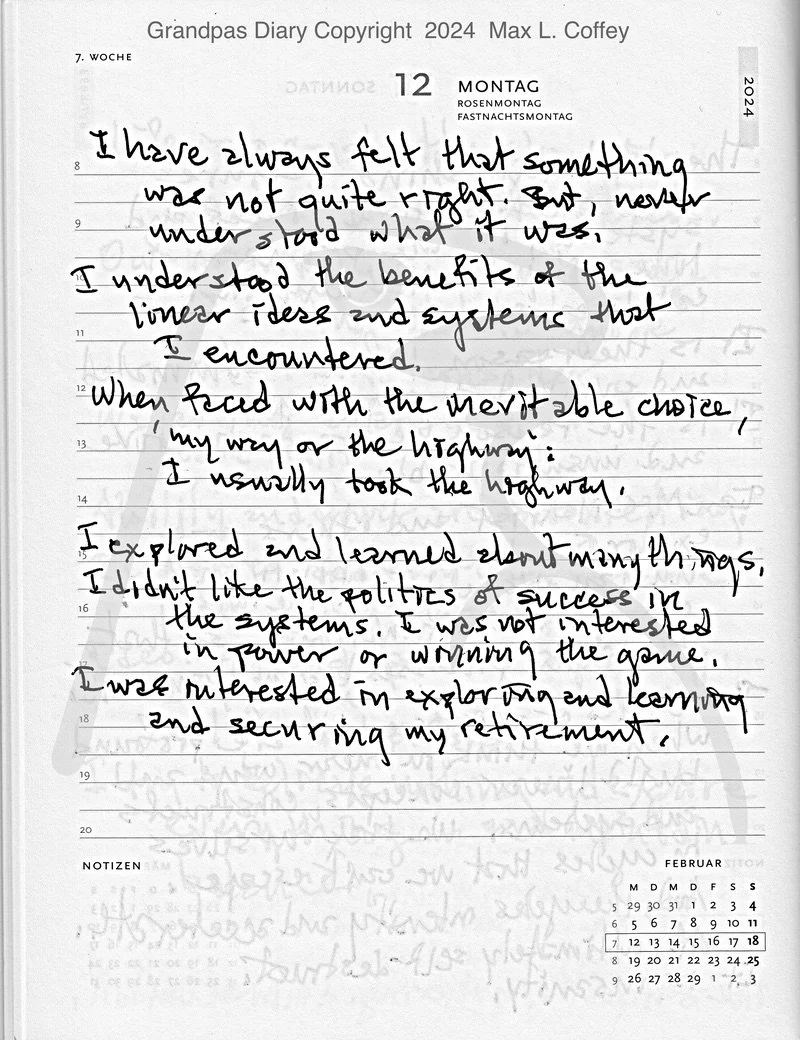 Grandpas Diary Copyright 2024 Max L. Coffey
7. WOCHE
12 MONTAG
ROSENMONTAG
FASTNACHTSMONTAG
2024
I have always felt that something
8
was not quite right. But, never
9
understood what it was.
10
I understood the benefits of the
linear ideas and systems that
11
I encountered.
12
When faced with the inevitable choice,
13
'my way or the highway':
I usually took the highway.
14
I explored and learned about many things.
15
I didn't like the politics of success in
16
the systems. I was not interested
in power or winning the game.
17
I was interested in exploring and learning
18
and securing my retirement.
19
20
NOTIZEN
FEBRUAR
M D M D F S S
5 29 30 31 1 2 3 4
6 5 6 7 8 9 10 11
7 12 13 14 15 16 17 18
8 19 20 21 22 23 24 25
9 26 27 28 29 1 2 3